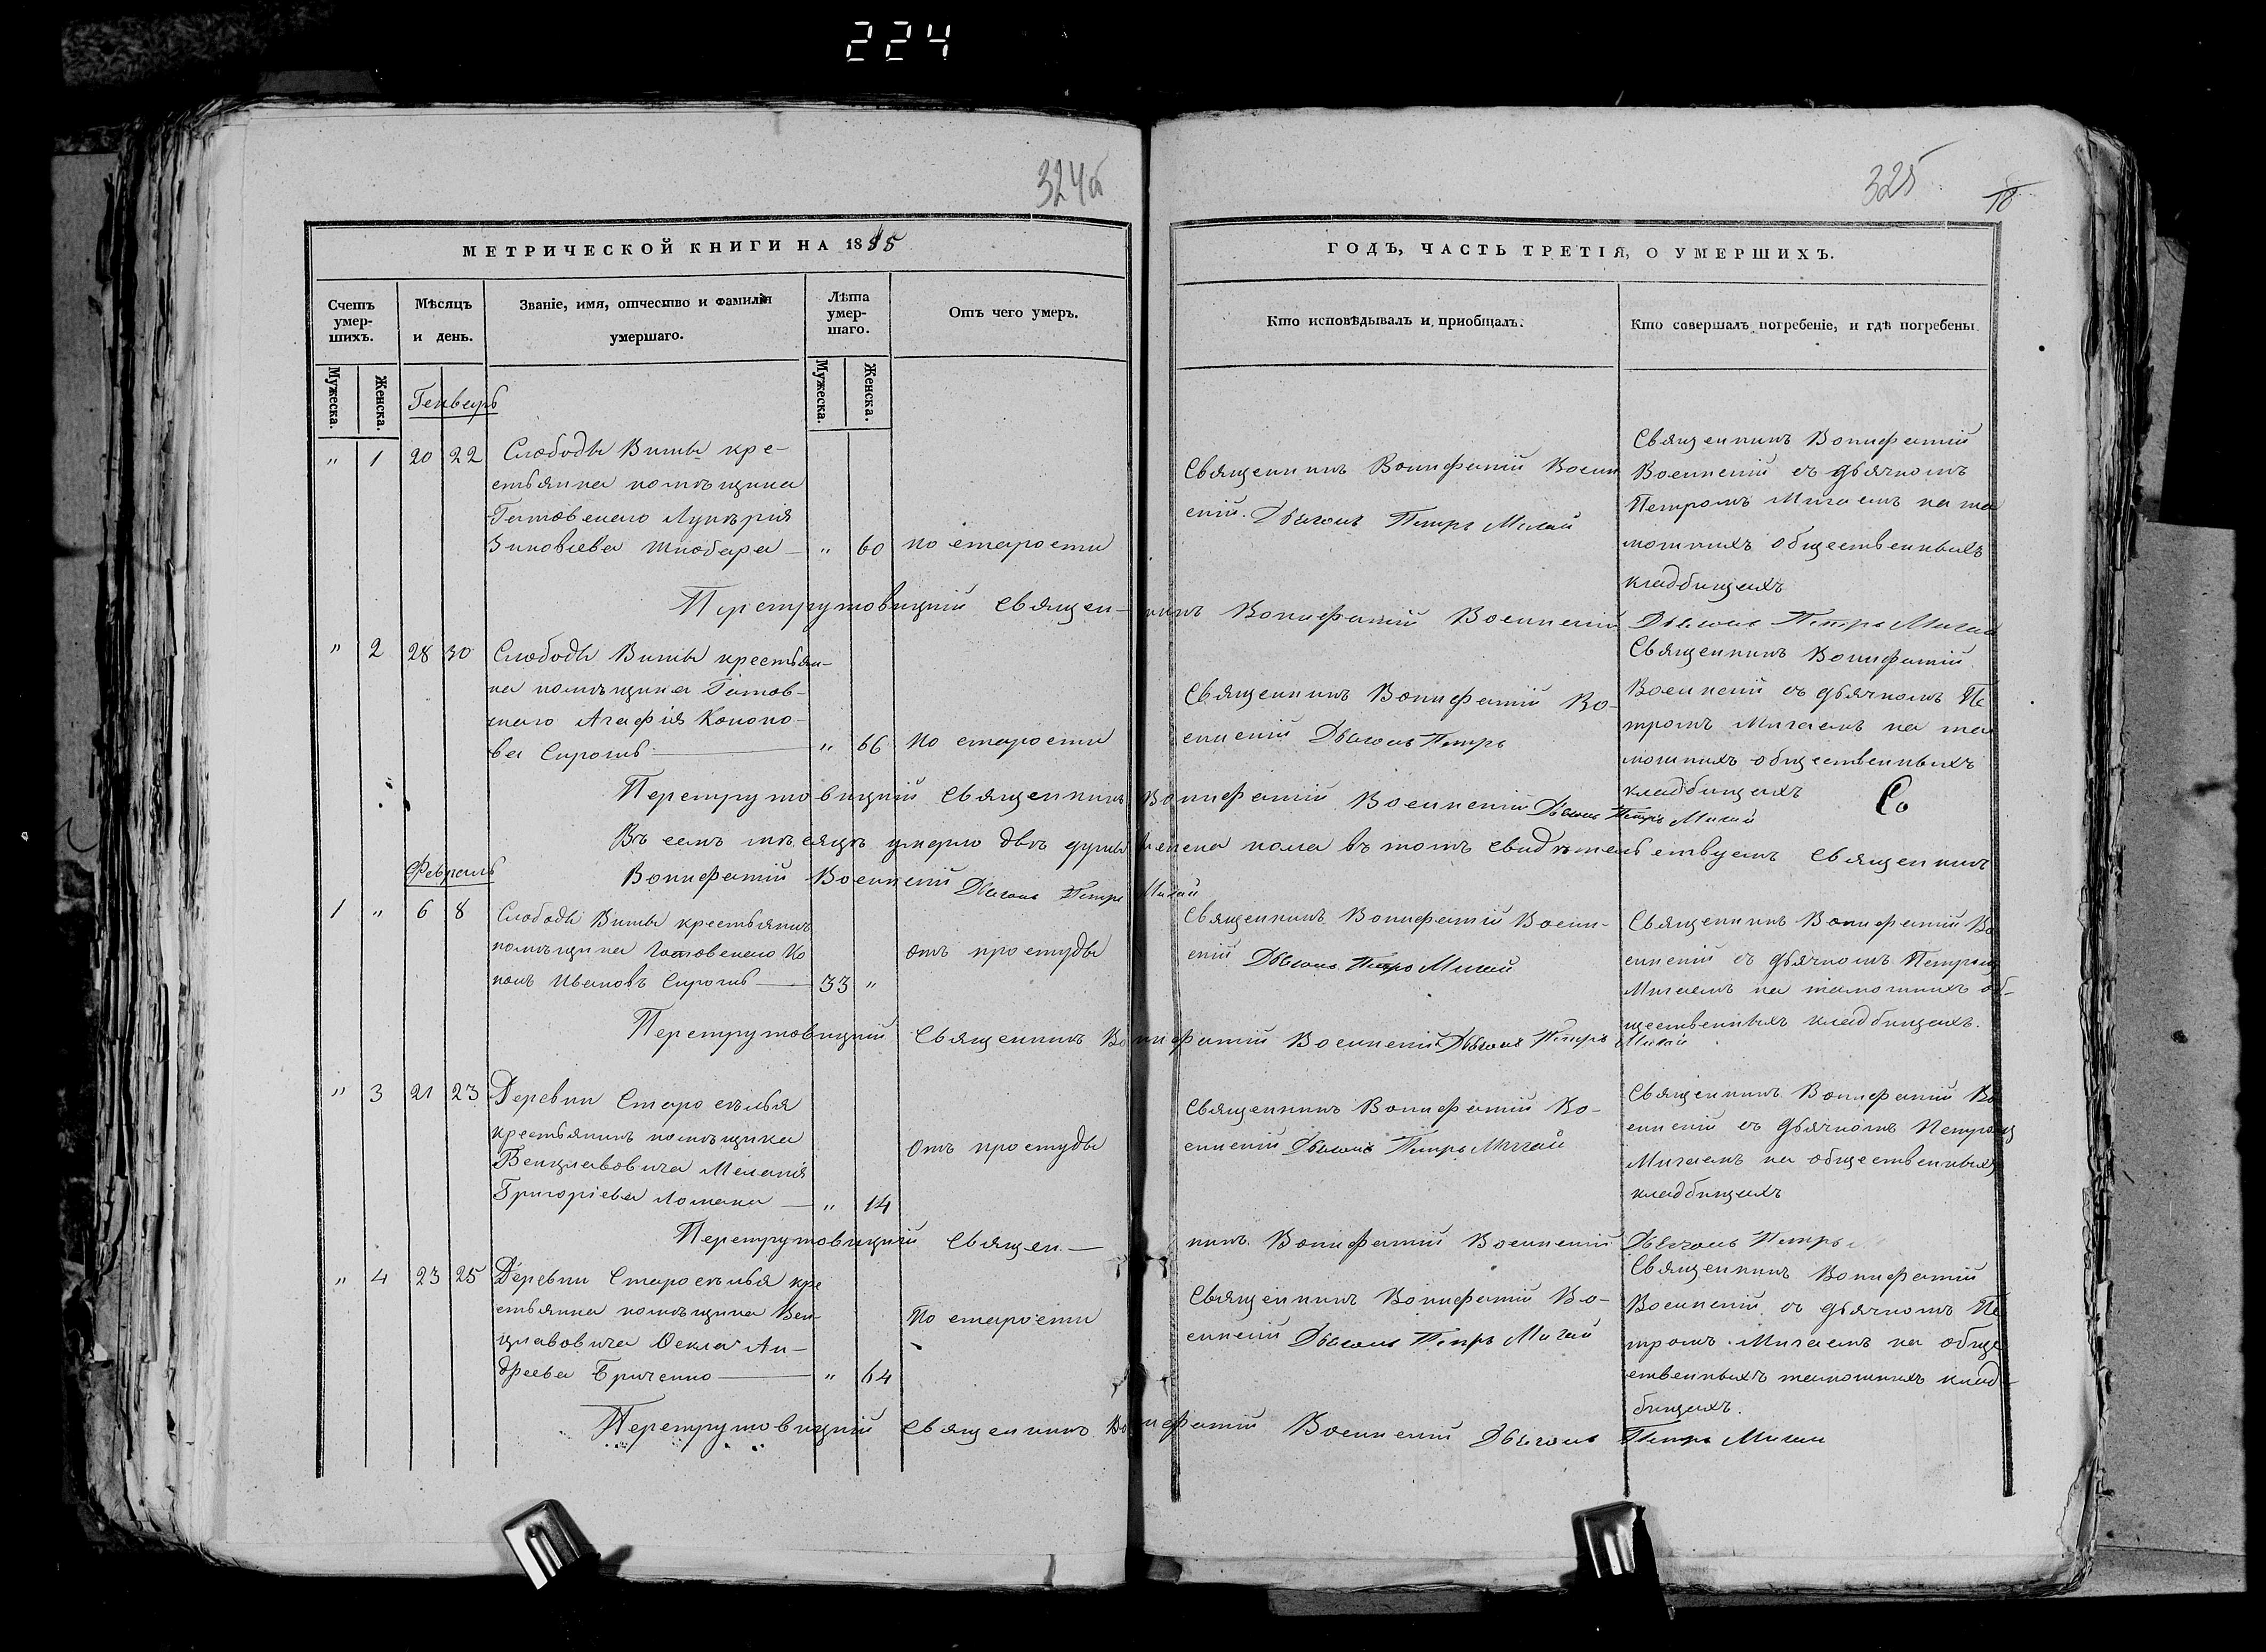 224
324об
325
18
МЕТРИЧЕСКОЙ КНИГИ НА 1855
ГОДЪ, ЧАСТЬ ТРЕТІЯ, О УМЕРШИХЪ.
Счетъ умер-шихъ.
Мѣсяцъ и день.
Званіе, имя, отчество и фамилія умершаго.
Лѣта умер-шаго.
Отъ чего умеръ.
Кто исповѣдывалъ и приобщалъ.
Кто совершалъ погребеніе, и гдѣ погребены
Мужеска.
Женска.
Мужеска.
Женска.
Генварь
" 1 20 22
Слободы Виты кре-
стьянка помѣщика
Гатовскаго Лукерія
Зиновіева — " 60
по старости
Священникъ Вонифатій Воен
скій. Дьячокъ Петръ Мигай
Священникъ Вонифатій
Воинскій съ дьячкомъ
Петромъ Мигаемъ на та
мошнихъ общественныхъ
кладбищахъ
священ-никъ Вонифатій Воинскій Дьячокъ Петръ Мигай
" 2 28 30
Слободы Виты крестьян-
ка помѣщика Гатов-
скаго Агафія Конono-
ва Сиротъ — " 66
по старости
Священникъ Вонифатій Во-
инскій Дьячокъ Петръ
Священникъ Вонифатій
Воинскій съ дьячкомъ Пе
тромъ Мигаемъ на та
мошнихъ общественныхъ
кладбищахъ
священникъ Вонифатій Воинскій Дьячокъ Петръ Мигай
Въ семъ мѣсяцѣ умерло двѣ души женска пола въ томъ свидѣтельствуетъ священникъ
Вонифатій Воинскій Дьячокъ Петръ Мигай
Февраль
1 " 6 8
Слободы Виты крестьянинъ
помѣщика Гатовскаго Ко
нонъ Ивановъ Сиротъ — 33 "
отъ простуды
Священникъ Вонифатій Воин-
скій Дьячокъ Петръ Мигай
Священникъ Вонифатій Во
инскій съ дьячкомъ Петромъ
Мигаемъ на тамошнихъ об-
щественныхъ кладбищахъ.
священникъ Вонифатій Воинскій Дьячокъ Петръ Мигай
" 3 21 23
Деревни Староселья
крестьянинъ помѣщика
Венцлавовича Меланія
Григоріева Ломака — " 14
отъ простуды
Священникъ Вонифатій Во-
инскій Дьячокъ Петръ Мигай
Священникъ Вонифатій Во
инскій съ дьячкомъ Петромъ
Мигаемъ на общественныхъ
кладбищахъ
священ-никъ Вонифатій Воинскій Дьячокъ Петръ
" 4 23 25
Деревни Староселья кре
стьянка помѣщика Вен-
цлавовича Ѳекла Ан-
дреева Гриченко — " 64
по старости
Священникъ Вонифатій Во-
инскій Дьячокъ Петръ Мигай
Священникъ Вонифатій
Воинскій съ дьячкомъ Пе
тромъ Мигаемъ на обще
ственныхъ тамошнихъ клад-
бищахъ.
священникъ Вонифатій Воинскій Дьячокъ Петръ Мигай